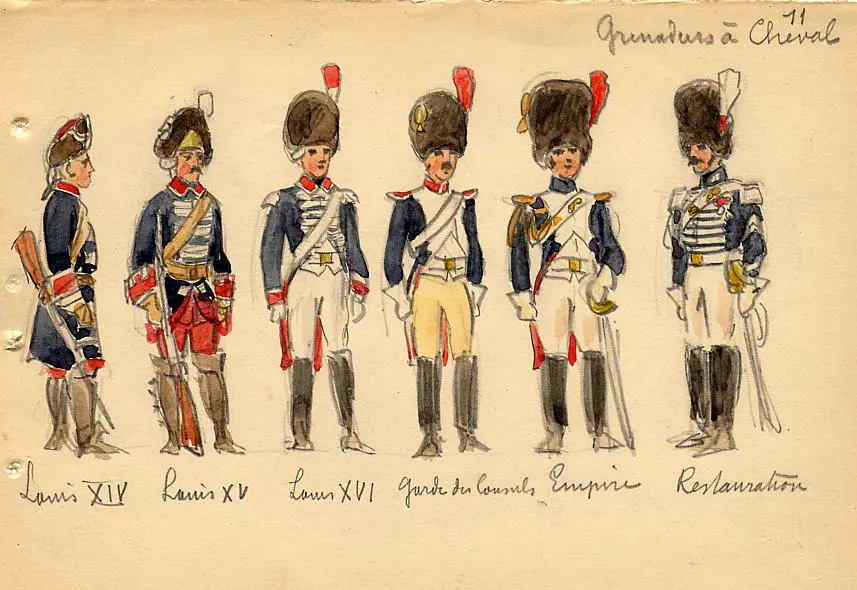 11
Grenadiers à Cheval
Louis XIV Louis XV Louis XVI Garde des Consuls Empire Restauration